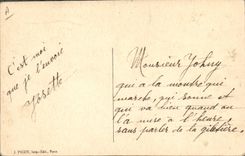 C'est moi
que je t'envoie
Yosette
Monsieur Johny
qui a la montre qui
marche, qui sonne et
qui va bien quand on
la met à l'heure
sans parler de la
J. PICOT, Imp.-Edit., Paris